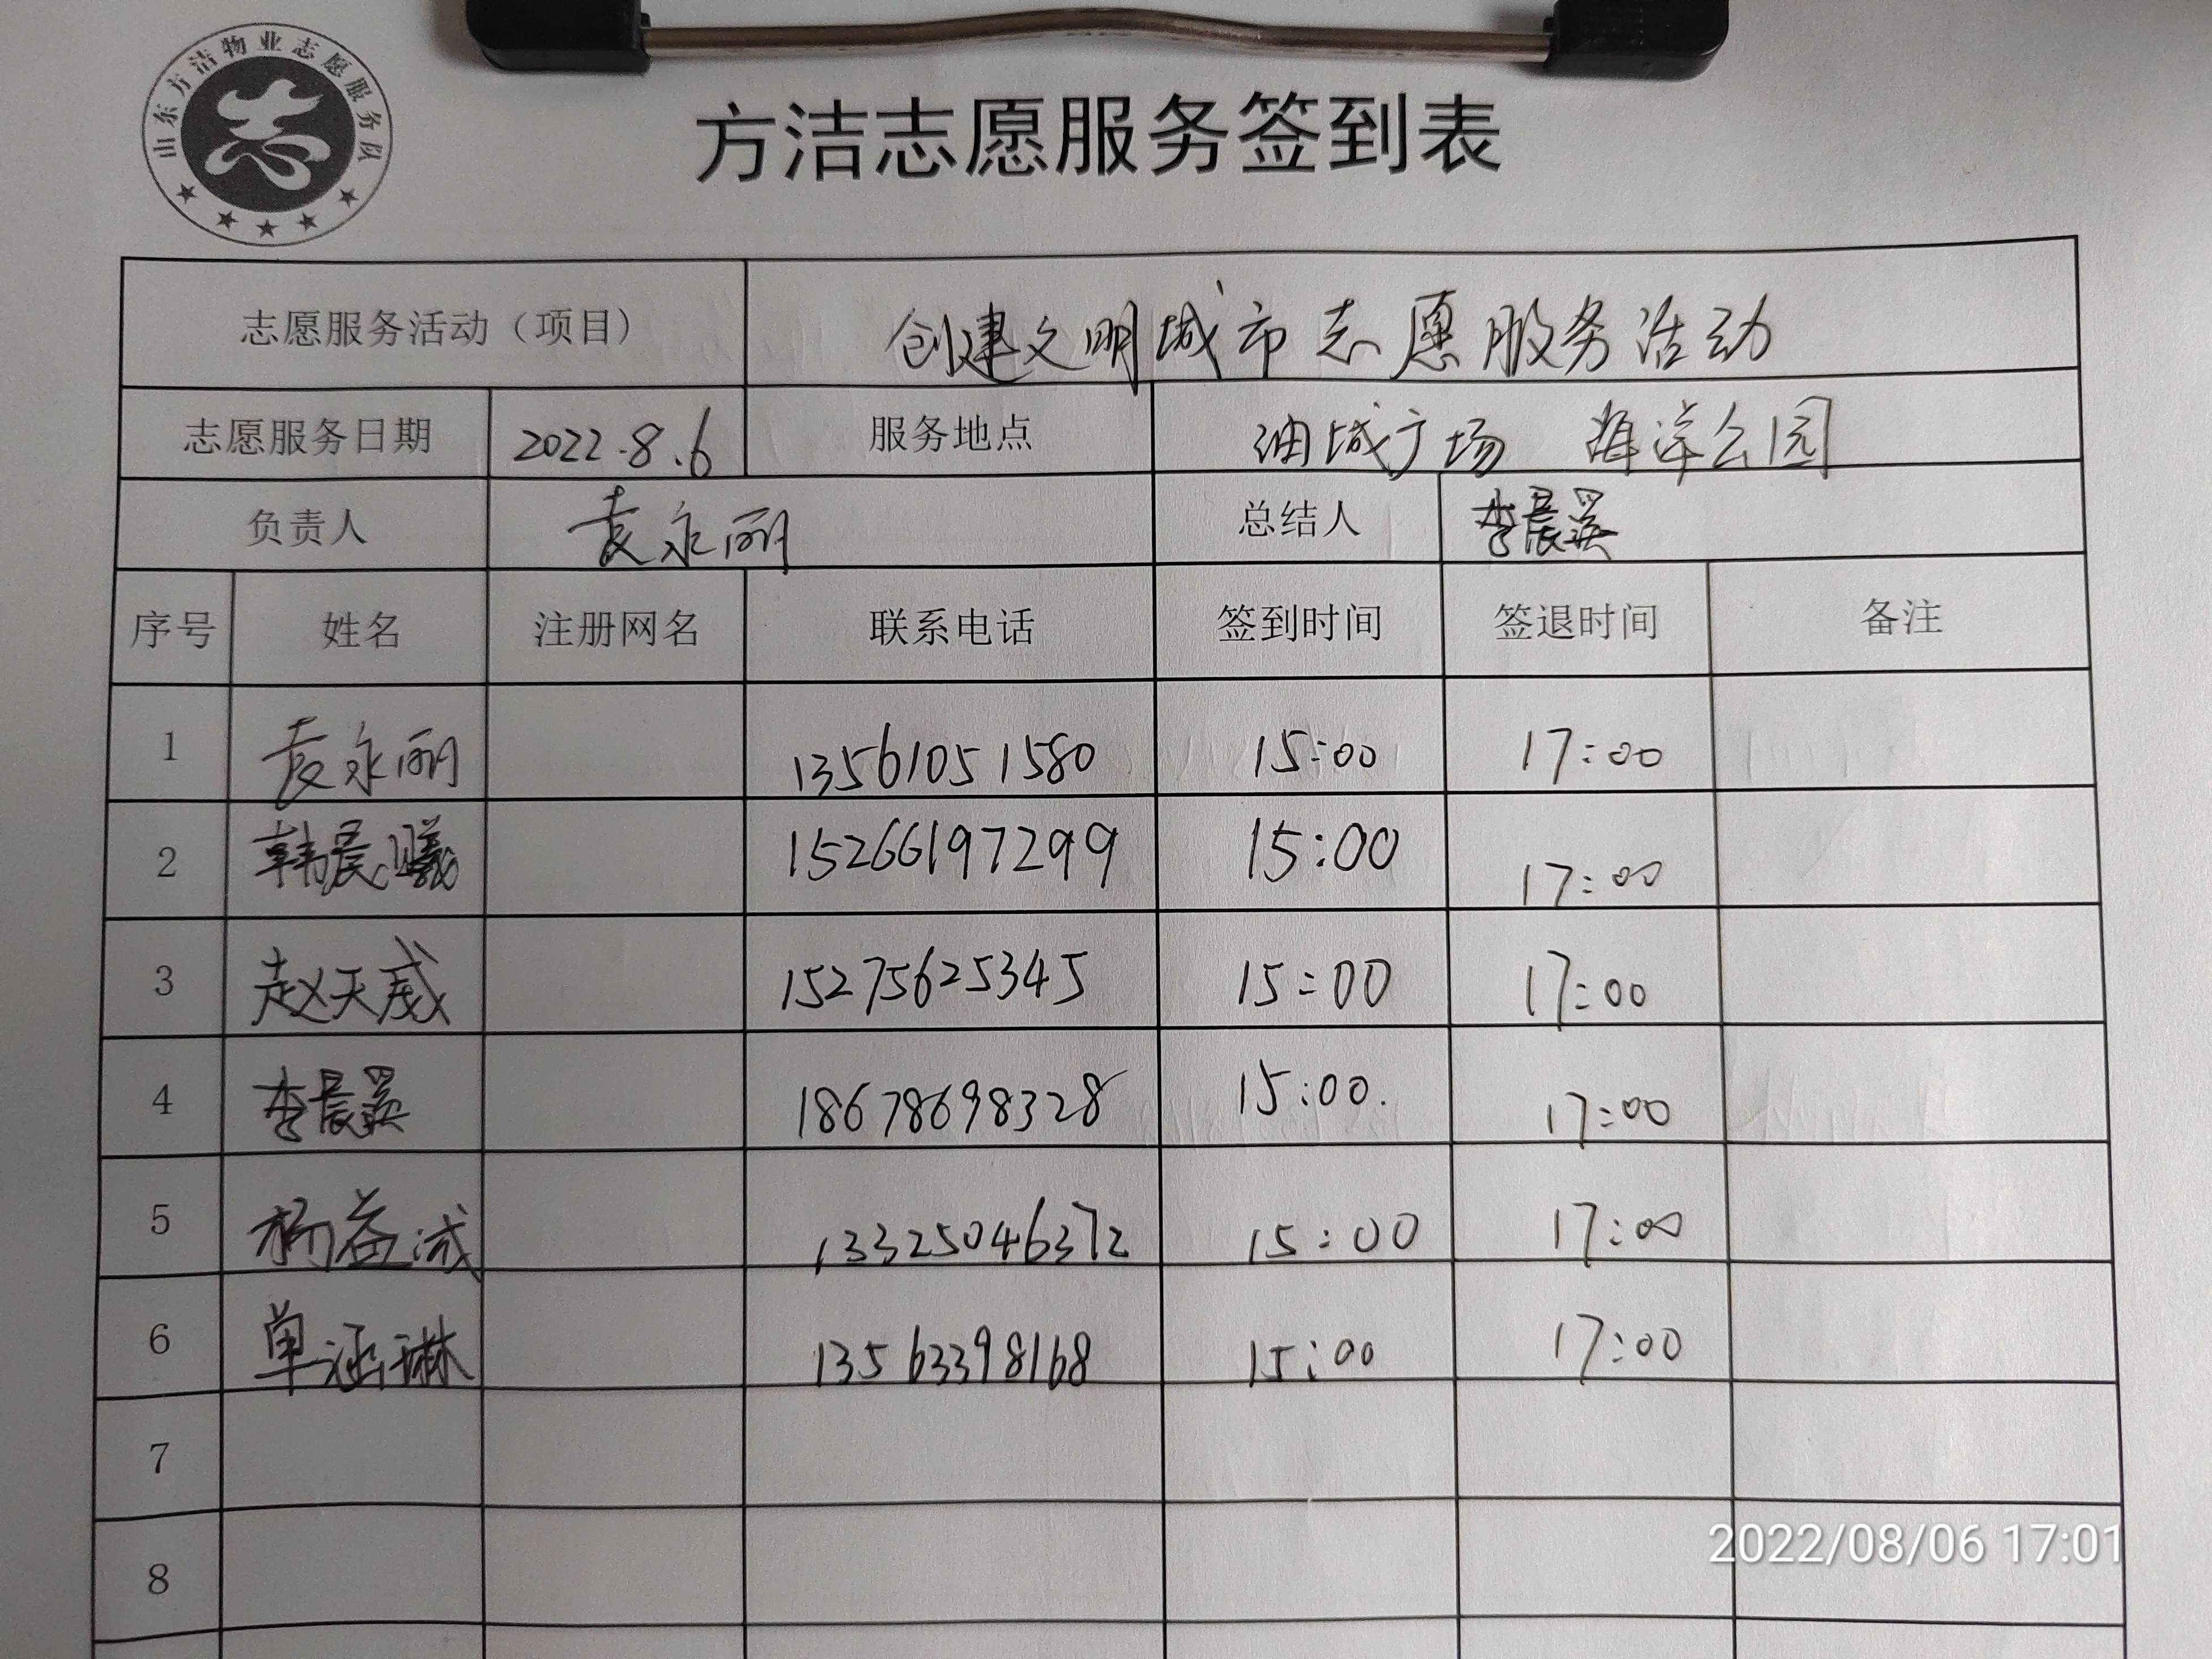 山东方洁物业志愿服务队
方洁志愿服务签到表
志愿服务活动（项目） 创建文明城市志愿服务活动
志愿服务日期 2022.8.6 服务地点 油城广场 海洋公园
负责人 袁永丽 总结人 李晨
序号 姓名 注册网名 联系电话 签到时间 签退时间 备注
1 袁永丽 13561051580 15:00 17:00
2 韩晨曦 15266197299 15:00 17:00
3 赵天威 15275625345 15:00 17:00
4 李晨 18678698328 15:00. 17:00
5 杨益 13325046372 15:00 17:00
6 单涵琳 13563398168 15:00 17:00
7
8
2022/08/06 17:01